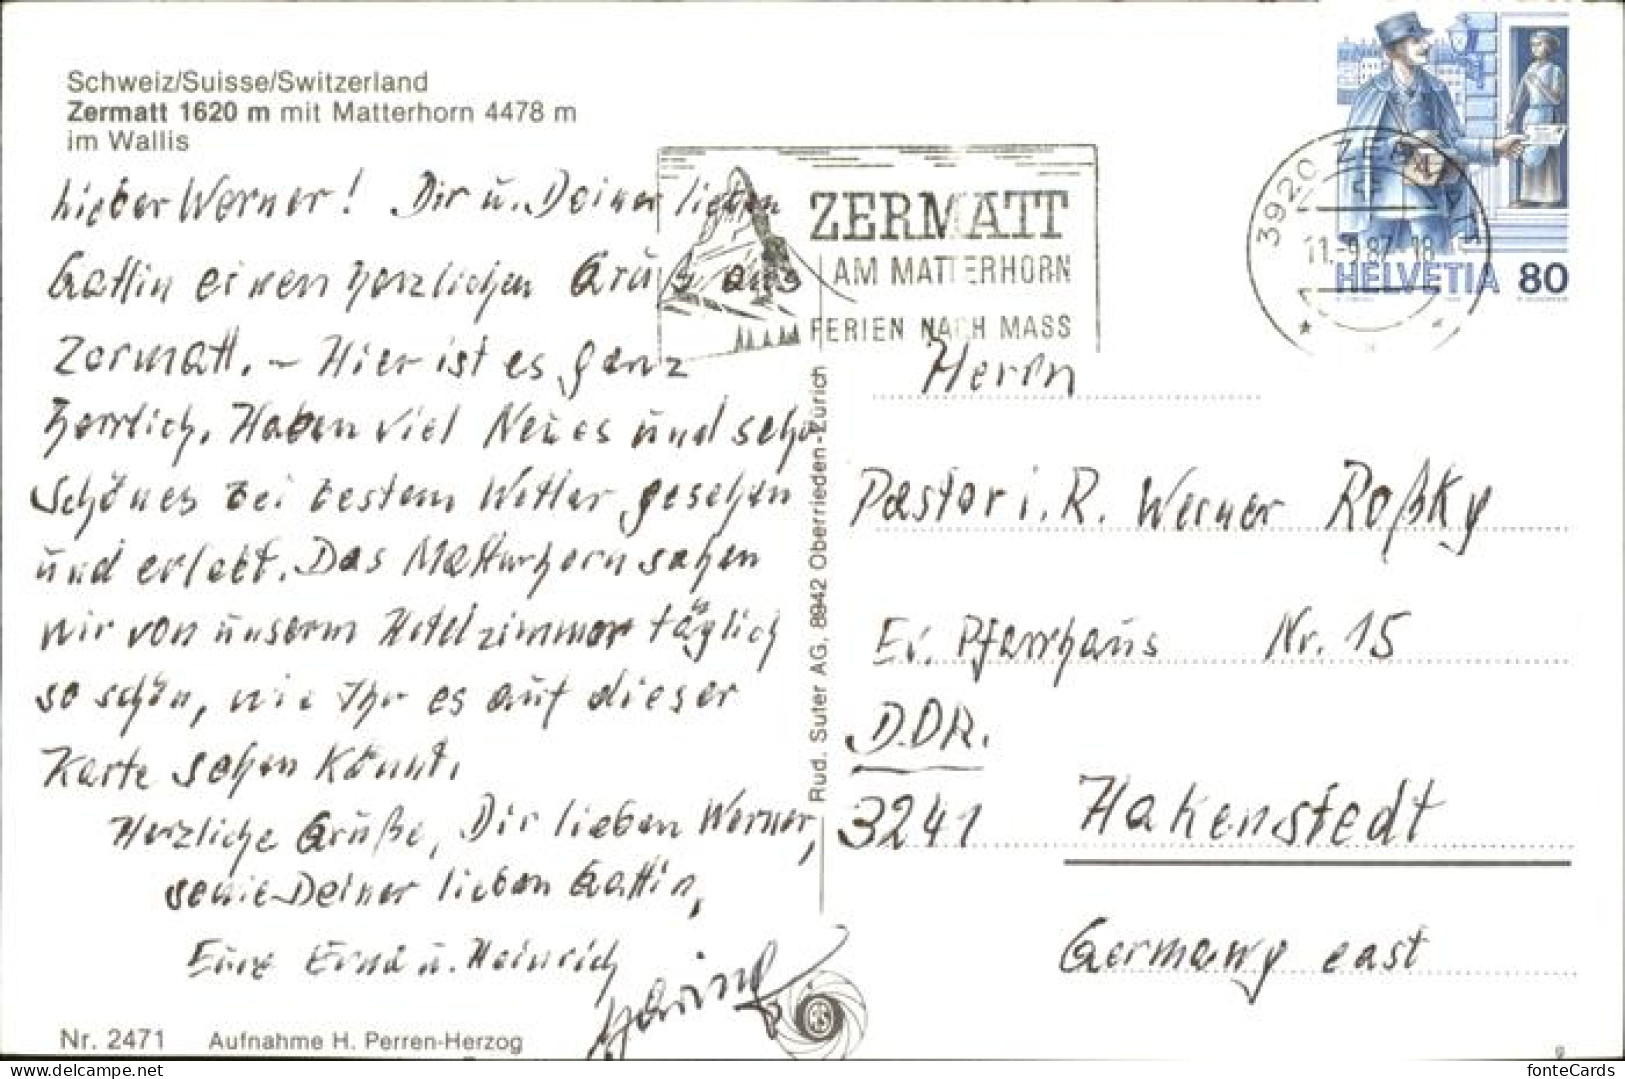 Schweiz/Suisse/Switzerland
Zermatt 1620 m mit Matterhorn 4478 m
im Wallis
Lieber Werner! Dir u. Deiner lieben
Gattin einen herzlichen Gruß aus
Zermatt. – Hier ist es ganz
herrlich. Haben viel Neues und sehr
Schönes bei bestem Wetter gesehen
und erlebt. Das Matterhorn sahen
wir von unserm Hotelzimmer täglich
so schön, wie Ihr es auf dieser
Karte sehen könnt.
Herzliche Grüße, Dir lieben Werner,
sowie Deiner lieben Gattin,
Eure Erna u. Heinrich
Nr. 2471 Aufnahme H. Perren-Herzog
Rud. Suter AG, 8942 Oberrieden-Zürich
ZERMATT
AM MATTERHORN
FERIEN NACH MASS
3920 ZERMATT
11.-9.87-18
HELVETIA 80
Herrn
Pastor i. R. Werner Roßky
Ev. Pfarrhaus Nr. 15
D.D.R.
3241 Hakenstedt
Germany east
fonteCards